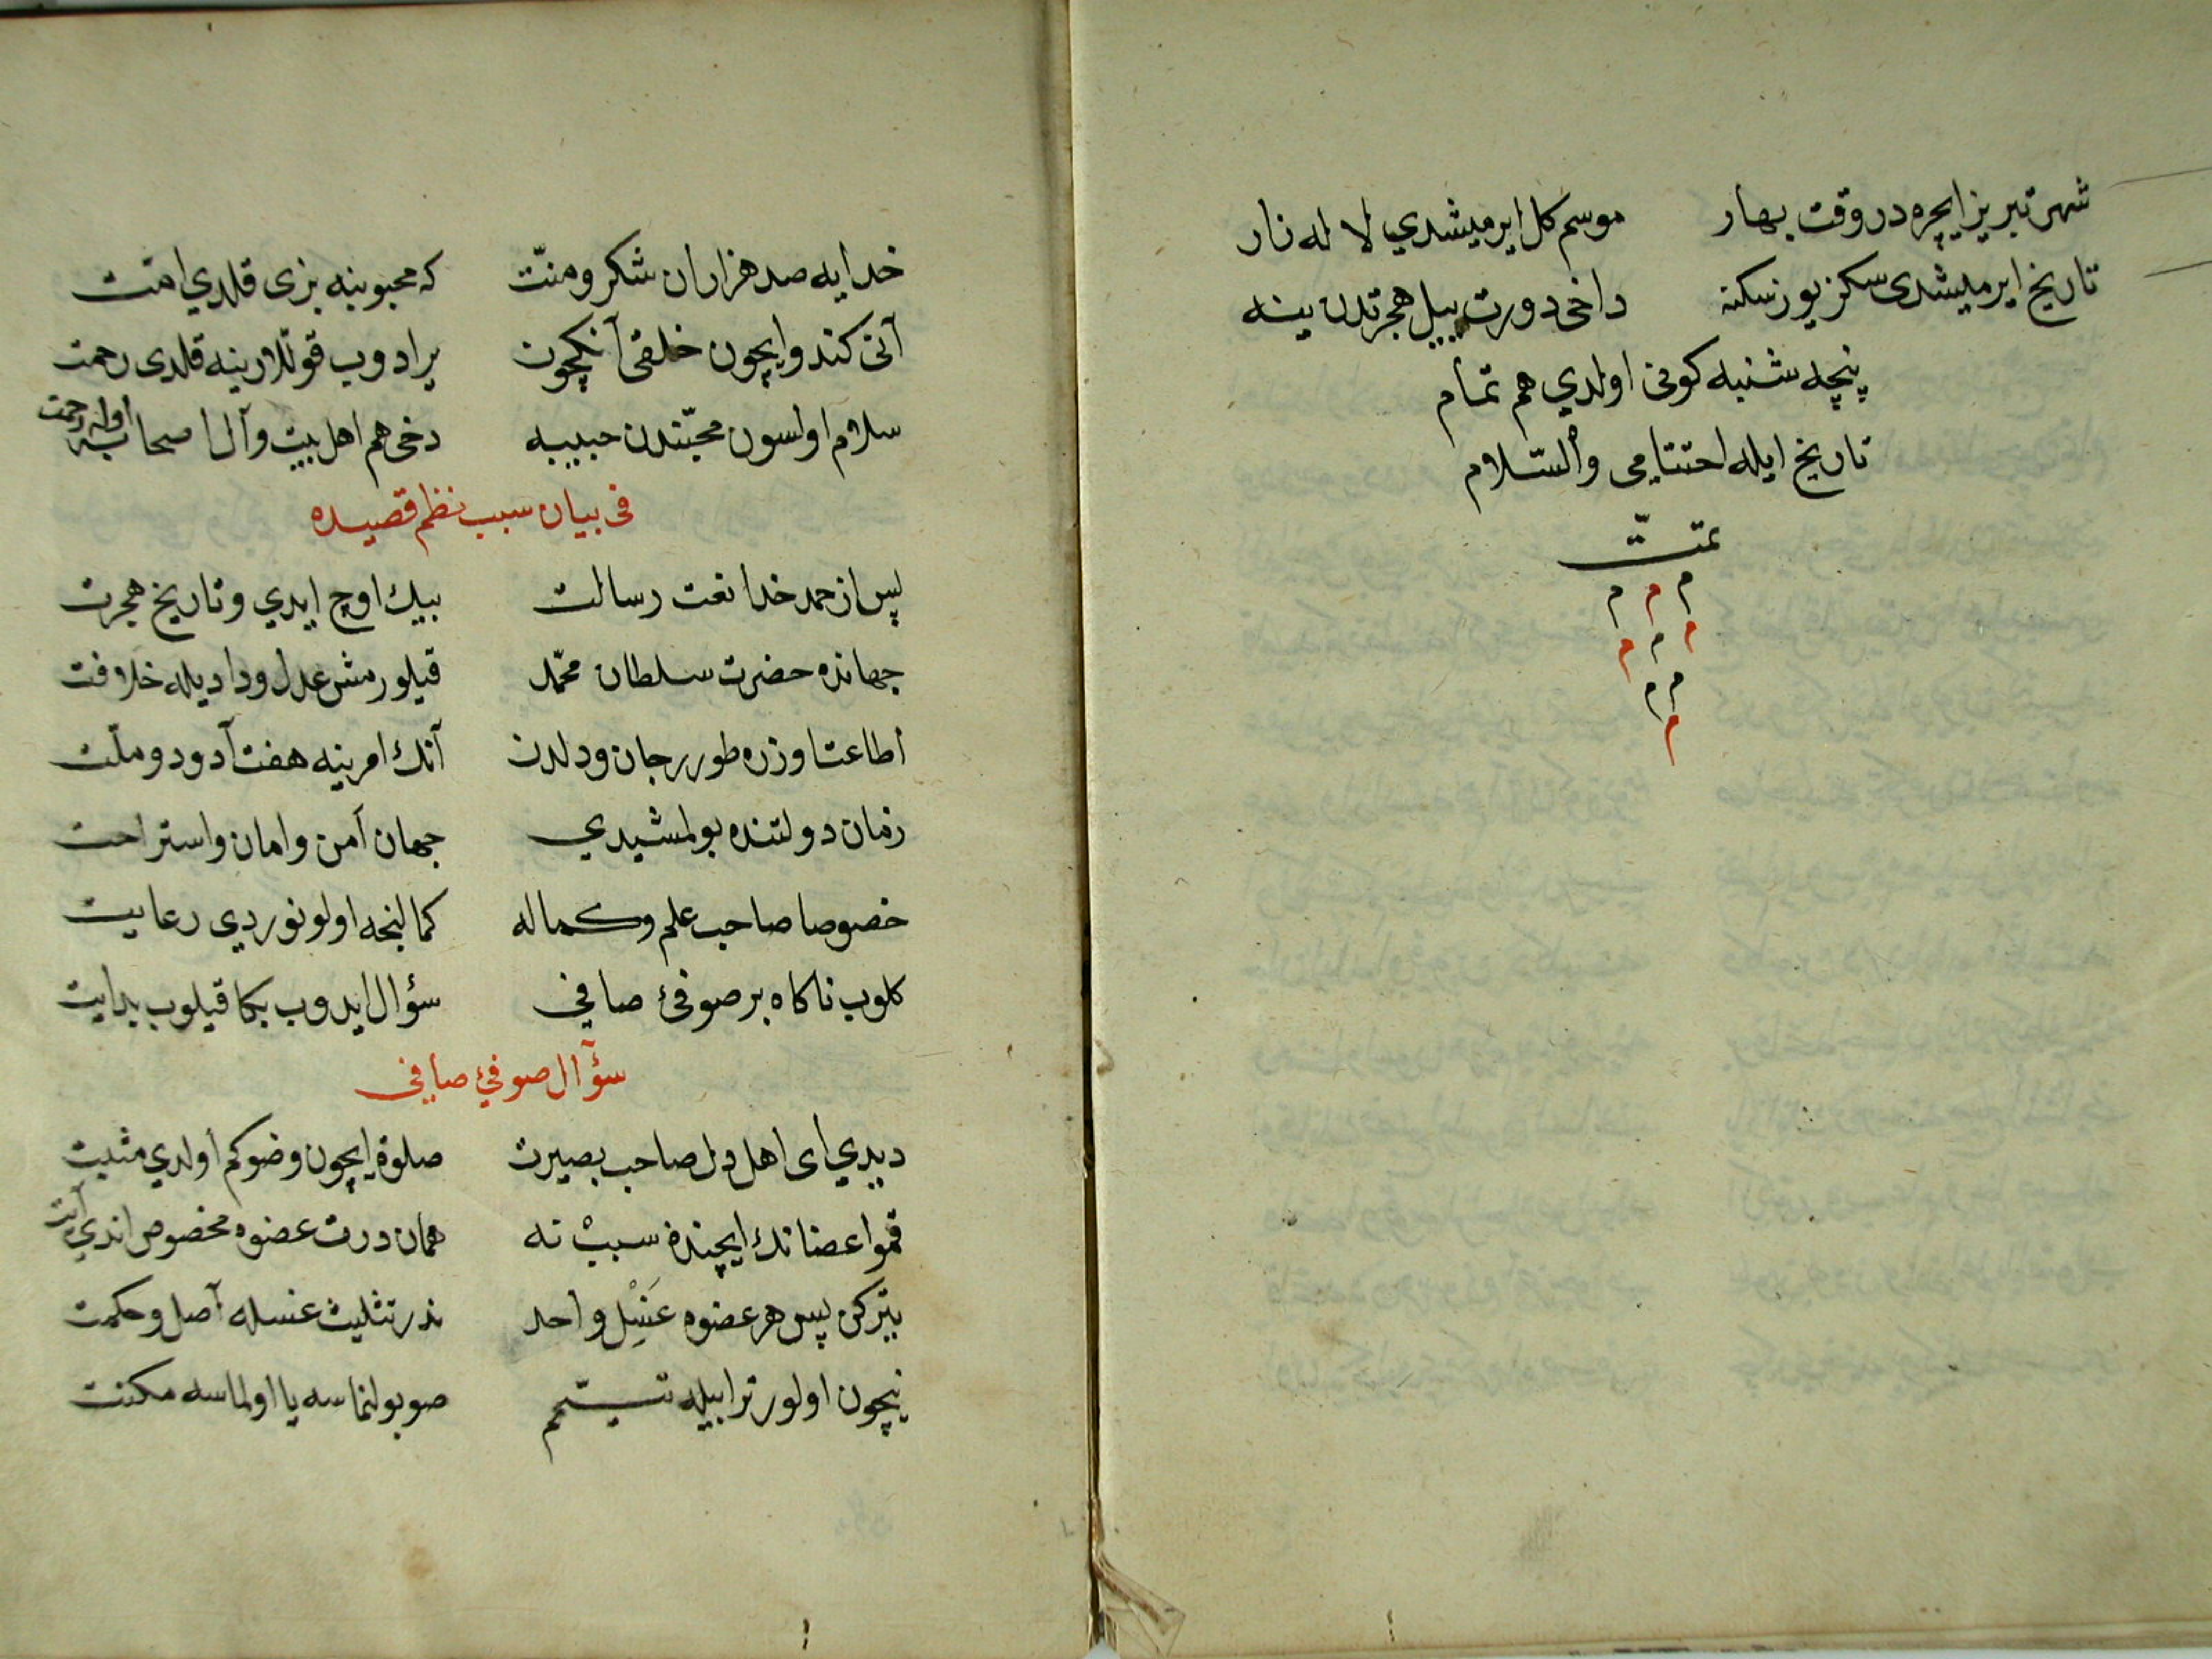 شهر تبریز ایچره در وقت بهار موسم کل ایرمیشدي لا له زار
تاریخ ایرمیشدی سکز یوز سکنه داخی دورت ییل هجرتدن ینه
پنچه شنبه کونی اولدي هم تمام
تاریخ ایله احتتامی والسّلام
تمتّ
م م م
م م م
م م
م
خدایه صد هزاران شکر و منّت که محبوبنه بزی قلدي امّت
آنی کندو ایچون خلقی آنکچون یرادوب قوللارینه قلدی رحمت
سلام اولسون محبّتدن حبیبه دخی هم اهل بیت و آل اصحابه اوله رحمت
فی بیان سبب نظم قصیده
پس از حمد خدا نعت رسالت بیك اوچ ایدي و تاریخ هجرت
جهانده حضرت سلطان محمّد قیلورمش عدل و دادیله خلافت
اطاعت اوزره طورر جان و دلدن آنك امرینه هفت آدو دو ملّت
زمان دولتنده بولمشیدي جهان آمن و امان و استراحت
خصوصا صاحب علم و کماله کمالنجه اولونوردي رعایت
کلوب ناکاه بر صوفئ صافي سؤال ایدوب بکا قیلوب بدایت
سؤآل صوفئ صافی
دیدي ای اهل دل صاحب بصیرت صلوة ایچون وضوکم اولدي مثبت
قمو اعضانك ایچنده سبب نه همان درت عضوه مخصوص اندي آیت
یتر کن پس هر عضوه غَسْل واحد ندر تثلیث غسله آصل و حکمت
نیچون اولور ترابیله تیمّم صو بولنماسه یا اولماسه مکنت